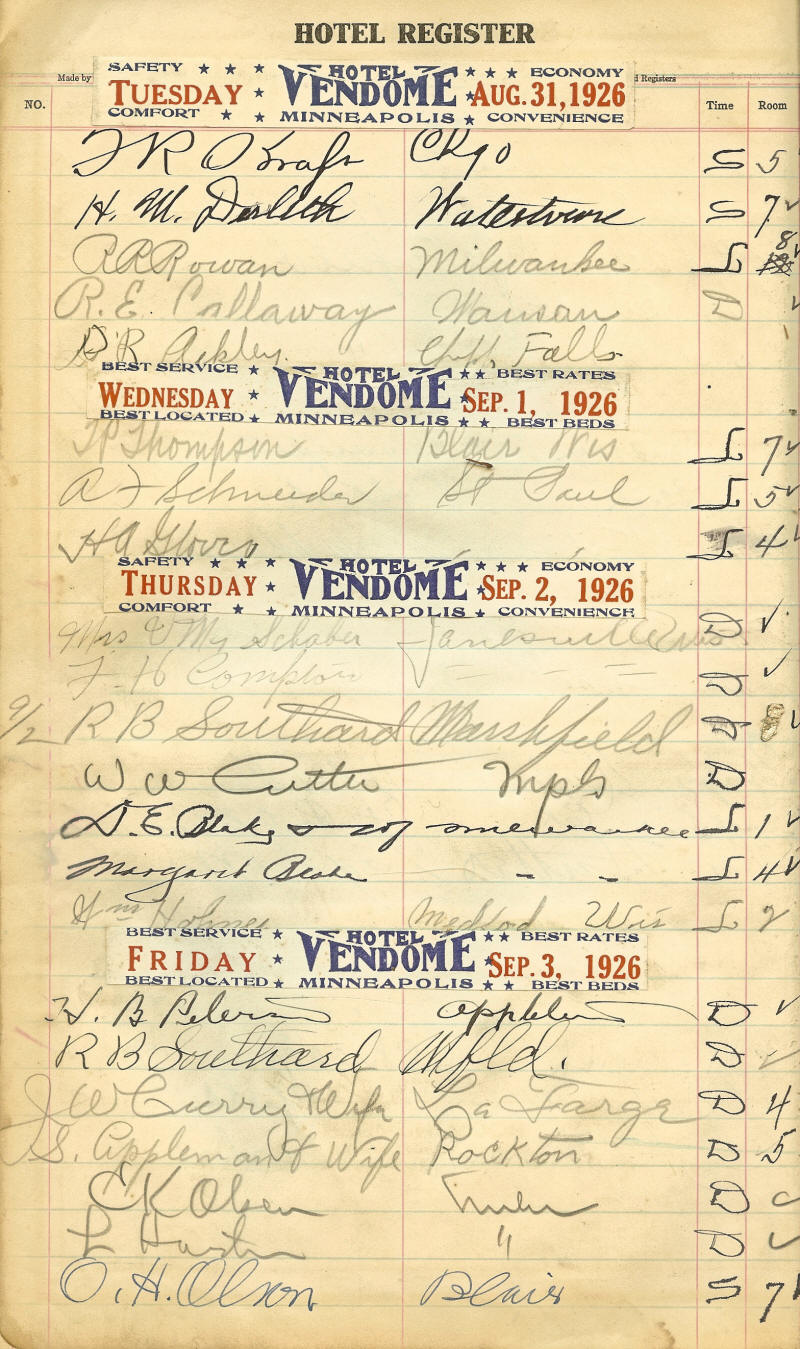 HOTEL REGISTER
Made by
d Registers
NO. Time Room
SAFETY ECONOMY
TUESDAY HOTEL VENDOME AUG. 31, 1926
COMFORT MINNEAPOLIS CONVENIENCE
Chgo S 5
H. M. Watertown S 7
R R Rowan Milwaukee L 8
R. E. Callaway Wausau D
D R Ackley Chipp. Falls
BEST SERVICE BEST RATES
WEDNESDAY HOTEL VENDOME SEP. 1, 1926
BEST LOCATED MINNEAPOLIS BEST BEDS
Thompson Blair Wis L 7
A F Schneider St Paul L 5
H A L 4
SAFETY ECONOMY
THURSDAY HOTEL VENDOME SEP. 2, 1926
COMFORT MINNEAPOLIS CONVENIENCE
Mrs Schaber Janesville Wis D
F H Compton — — — D
9/2 R B Southard Marshfield D 8
W W Cutter Mpls D
D. E. Blake Milwaukee L 1
Margaret Blake - - L 4
Wm Holmes Wis L 2
BEST SERVICE BEST RATES
FRIDAY HOTEL VENDOME SEP. 3, 1926
BEST LOCATED MINNEAPOLIS BEST BEDS
H. B Peterson Appleton D
R B Southard Mfld. D
J W Curry & Wife La Farge D 4
S. Appleman & Wife Rockton D 5
C K Olsen D
L " D
O. H. Olson Blair S 7